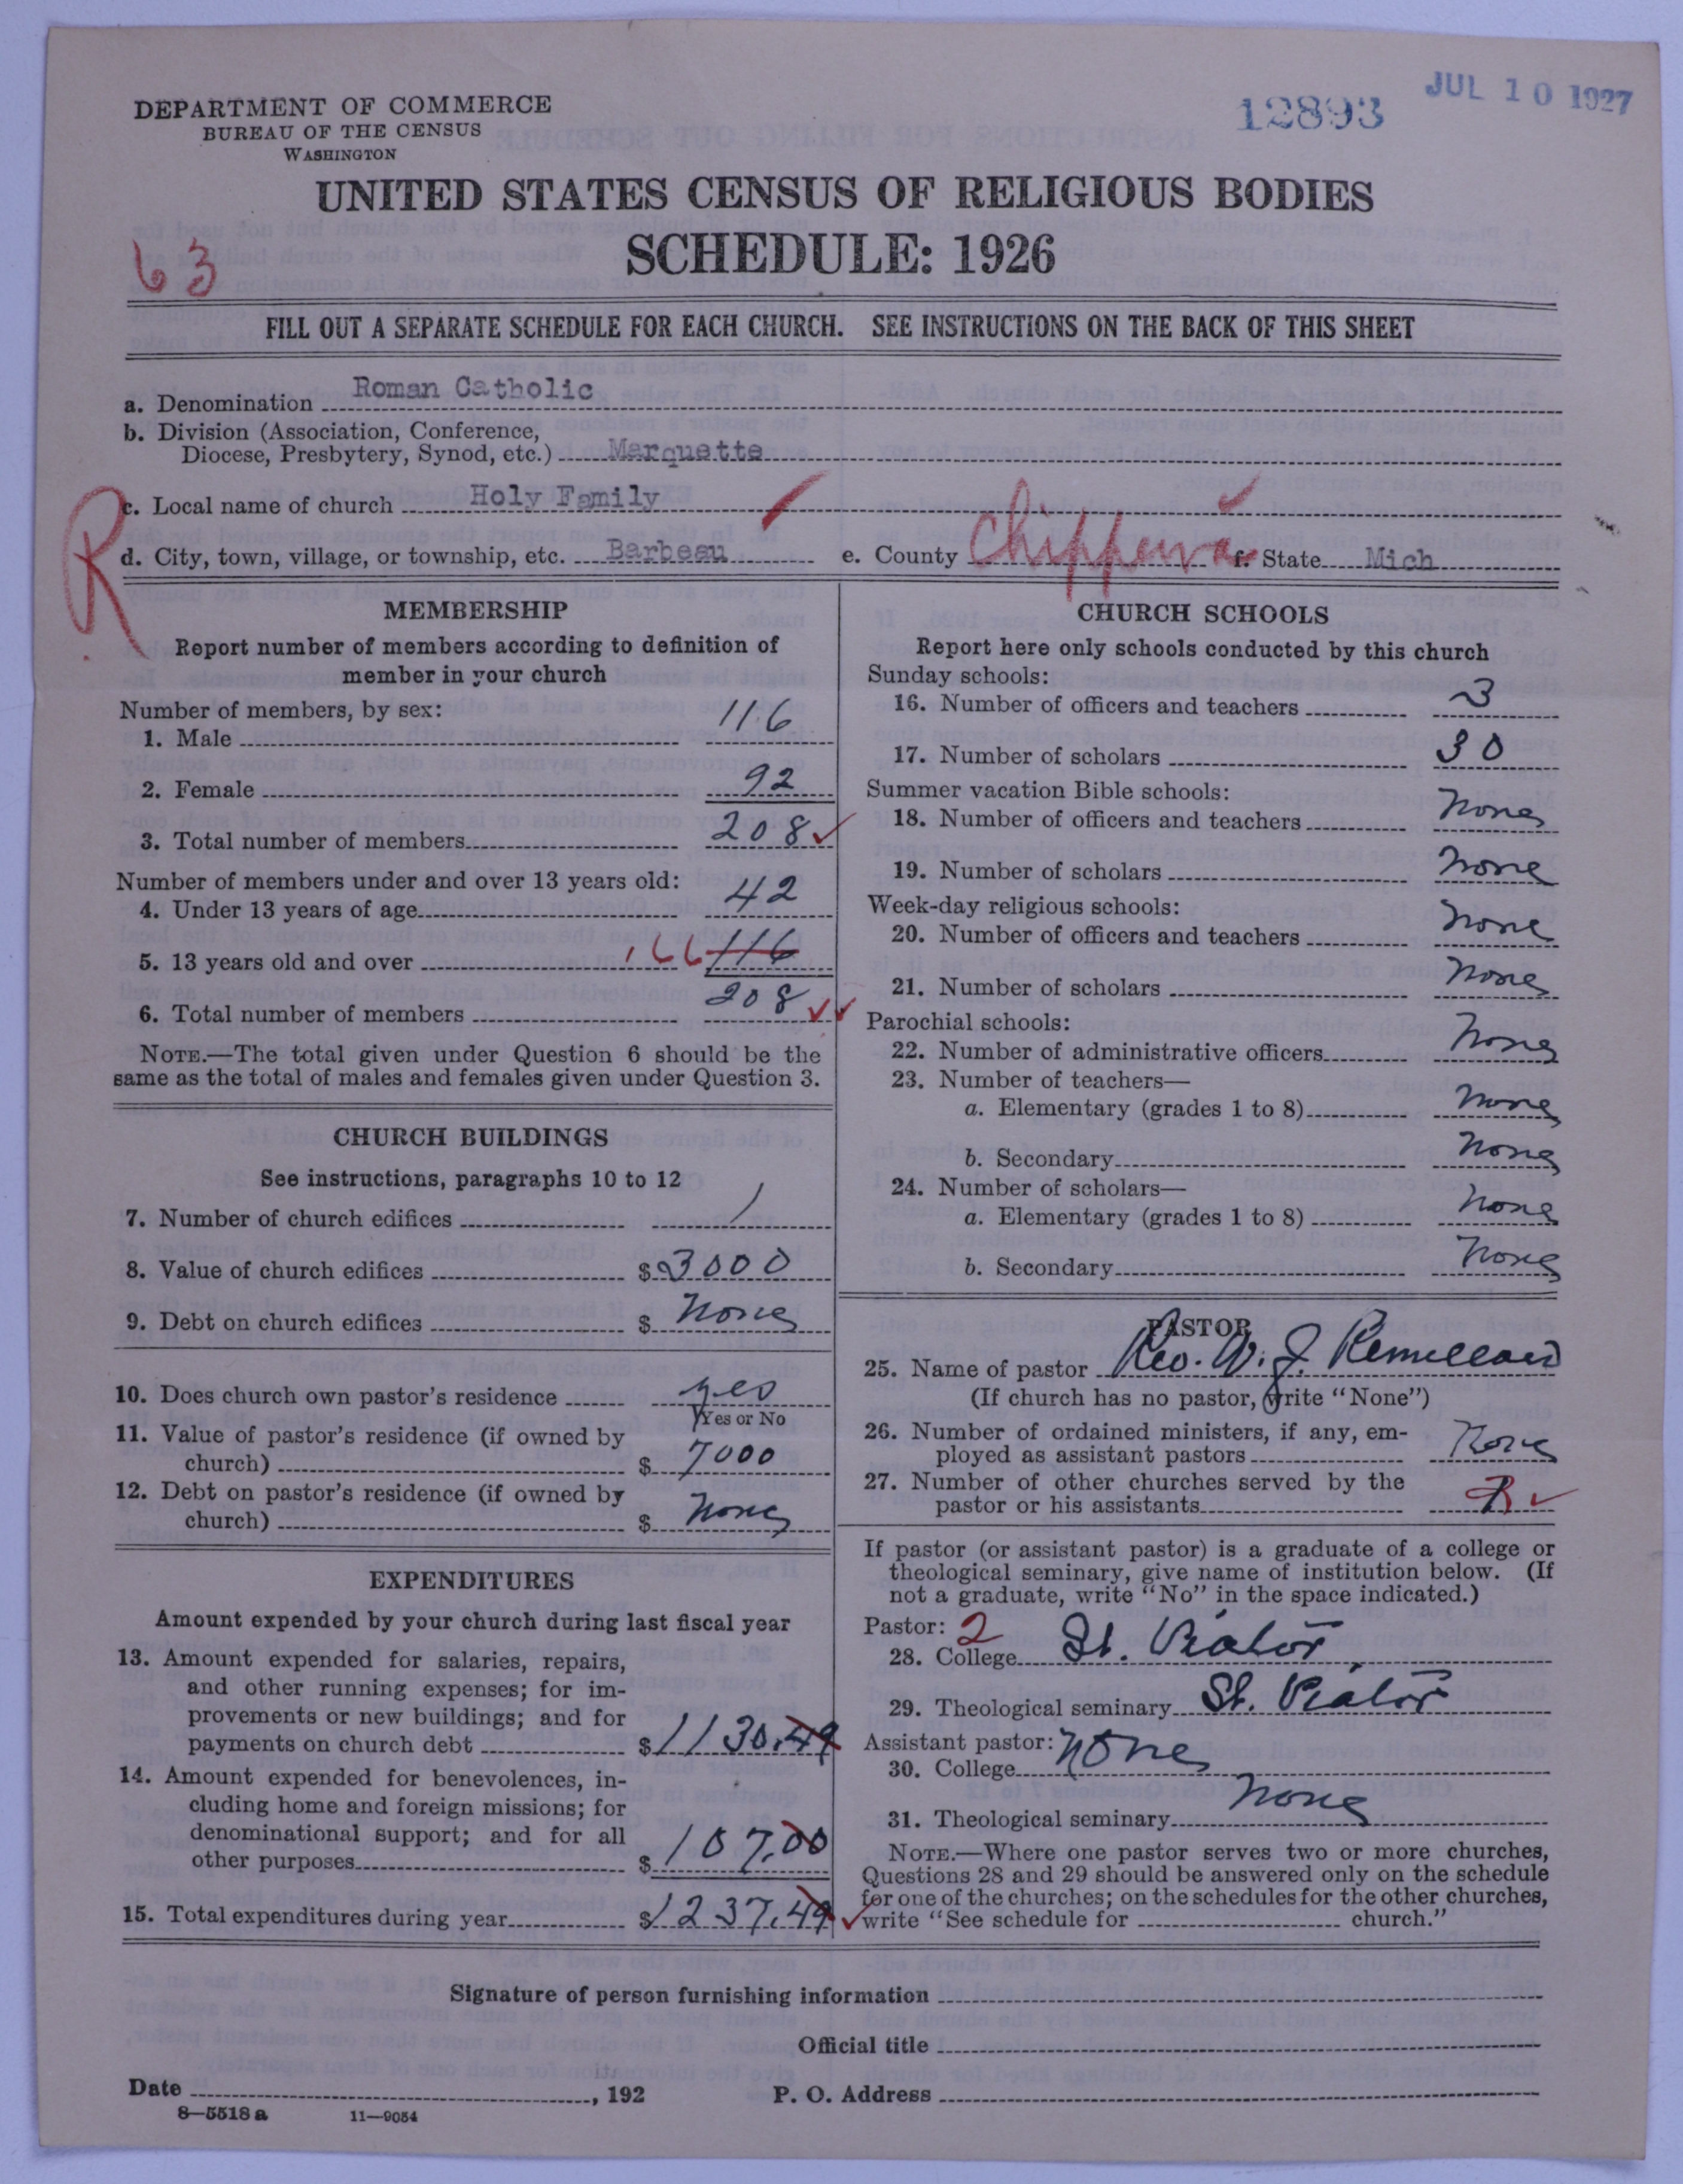 DEPARTMENT OF COMMERCE
BUREAU OF THE CENSUS
WASHINGTON
12893
JUL 10 1927
UNITED STATES CENSUS OF RELIGIOUS BODIES
SCHEDULE: 1926
63
FILL OUT A SEPARATE SCHEDULE FOR EACH CHURCH. SEE INSTRUCTIONS ON THE BACK OF THIS SHEET
a. Denomination Roman Catholic
b. Division (Association, Conference,
Diocese, Presbytery, Synod, etc.) Marquette
R
c. Local name of church Holy Family
d. City, town, village, or township, etc. Barbeau e. County Chippewa f. State Mich
MEMBERSHIP
Report number of members according to definition of
member in your church
Number of members, by sex:
1. Male 116
2. Female 92
3. Total number of members 208
Number of members under and over 13 years old:
4. Under 13 years of age 42
5. 13 years old and over 166 116
6. Total number of members 208
NOTE.—The total given under Question 6 should be the
same as the total of males and females given under Question 3.
CHURCH BUILDINGS
See instructions, paragraphs 10 to 12
7. Number of church edifices 1
8. Value of church edifices $3000
9. Debt on church edifices $ None
10. Does church own pastor's residence yes
Yes or No
11. Value of pastor's residence (if owned by
church) $ 7000
12. Debt on pastor's residence (if owned by
church) $ None
EXPENDITURES
Amount expended by your church during last fiscal year
13. Amount expended for salaries, repairs,
and other running expenses; for im-
provements or new buildings; and for
payments on church debt $1130.49
14. Amount expended for benevolences, in-
cluding home and foreign missions; for
denominational support; and for all
other purposes $107.00
15. Total expenditures during year $1237.49
CHURCH SCHOOLS
Report here only schools conducted by this church
Sunday schools:
16. Number of officers and teachers 3
17. Number of scholars 30
Summer vacation Bible schools:
18. Number of officers and teachers None
19. Number of scholars None
Week-day religious schools:
20. Number of officers and teachers None
21. Number of scholars None
Parochial schools:
22. Number of administrative officers None
23. Number of teachers—
a. Elementary (grades 1 to 8) None
b. Secondary None
24. Number of scholars—
a. Elementary (grades 1 to 8) None
b. Secondary None
PASTOR
25. Name of pastor Rev. W. J. Remillard
(If church has no pastor, write "None")
26. Number of ordained ministers, if any, em-
ployed as assistant pastors None
27. Number of other churches served by the
pastor or his assistants
If pastor (or assistant pastor) is a graduate of a college or
theological seminary, give name of institution below. (If
not a graduate, write "No" in the space indicated.)
Pastor: 2
28. College St. Viator
29. Theological seminary St. Viator
Assistant pastor:
30. College None
31. Theological seminary None
NOTE.—Where one pastor serves two or more churches,
Questions 28 and 29 should be answered only on the schedule
for one of the churches; on the schedules for the other churches,
write "See schedule for church."
Signature of person furnishing information
Official title
Date , 192 P. O. Address
8—5518 a 11—9054